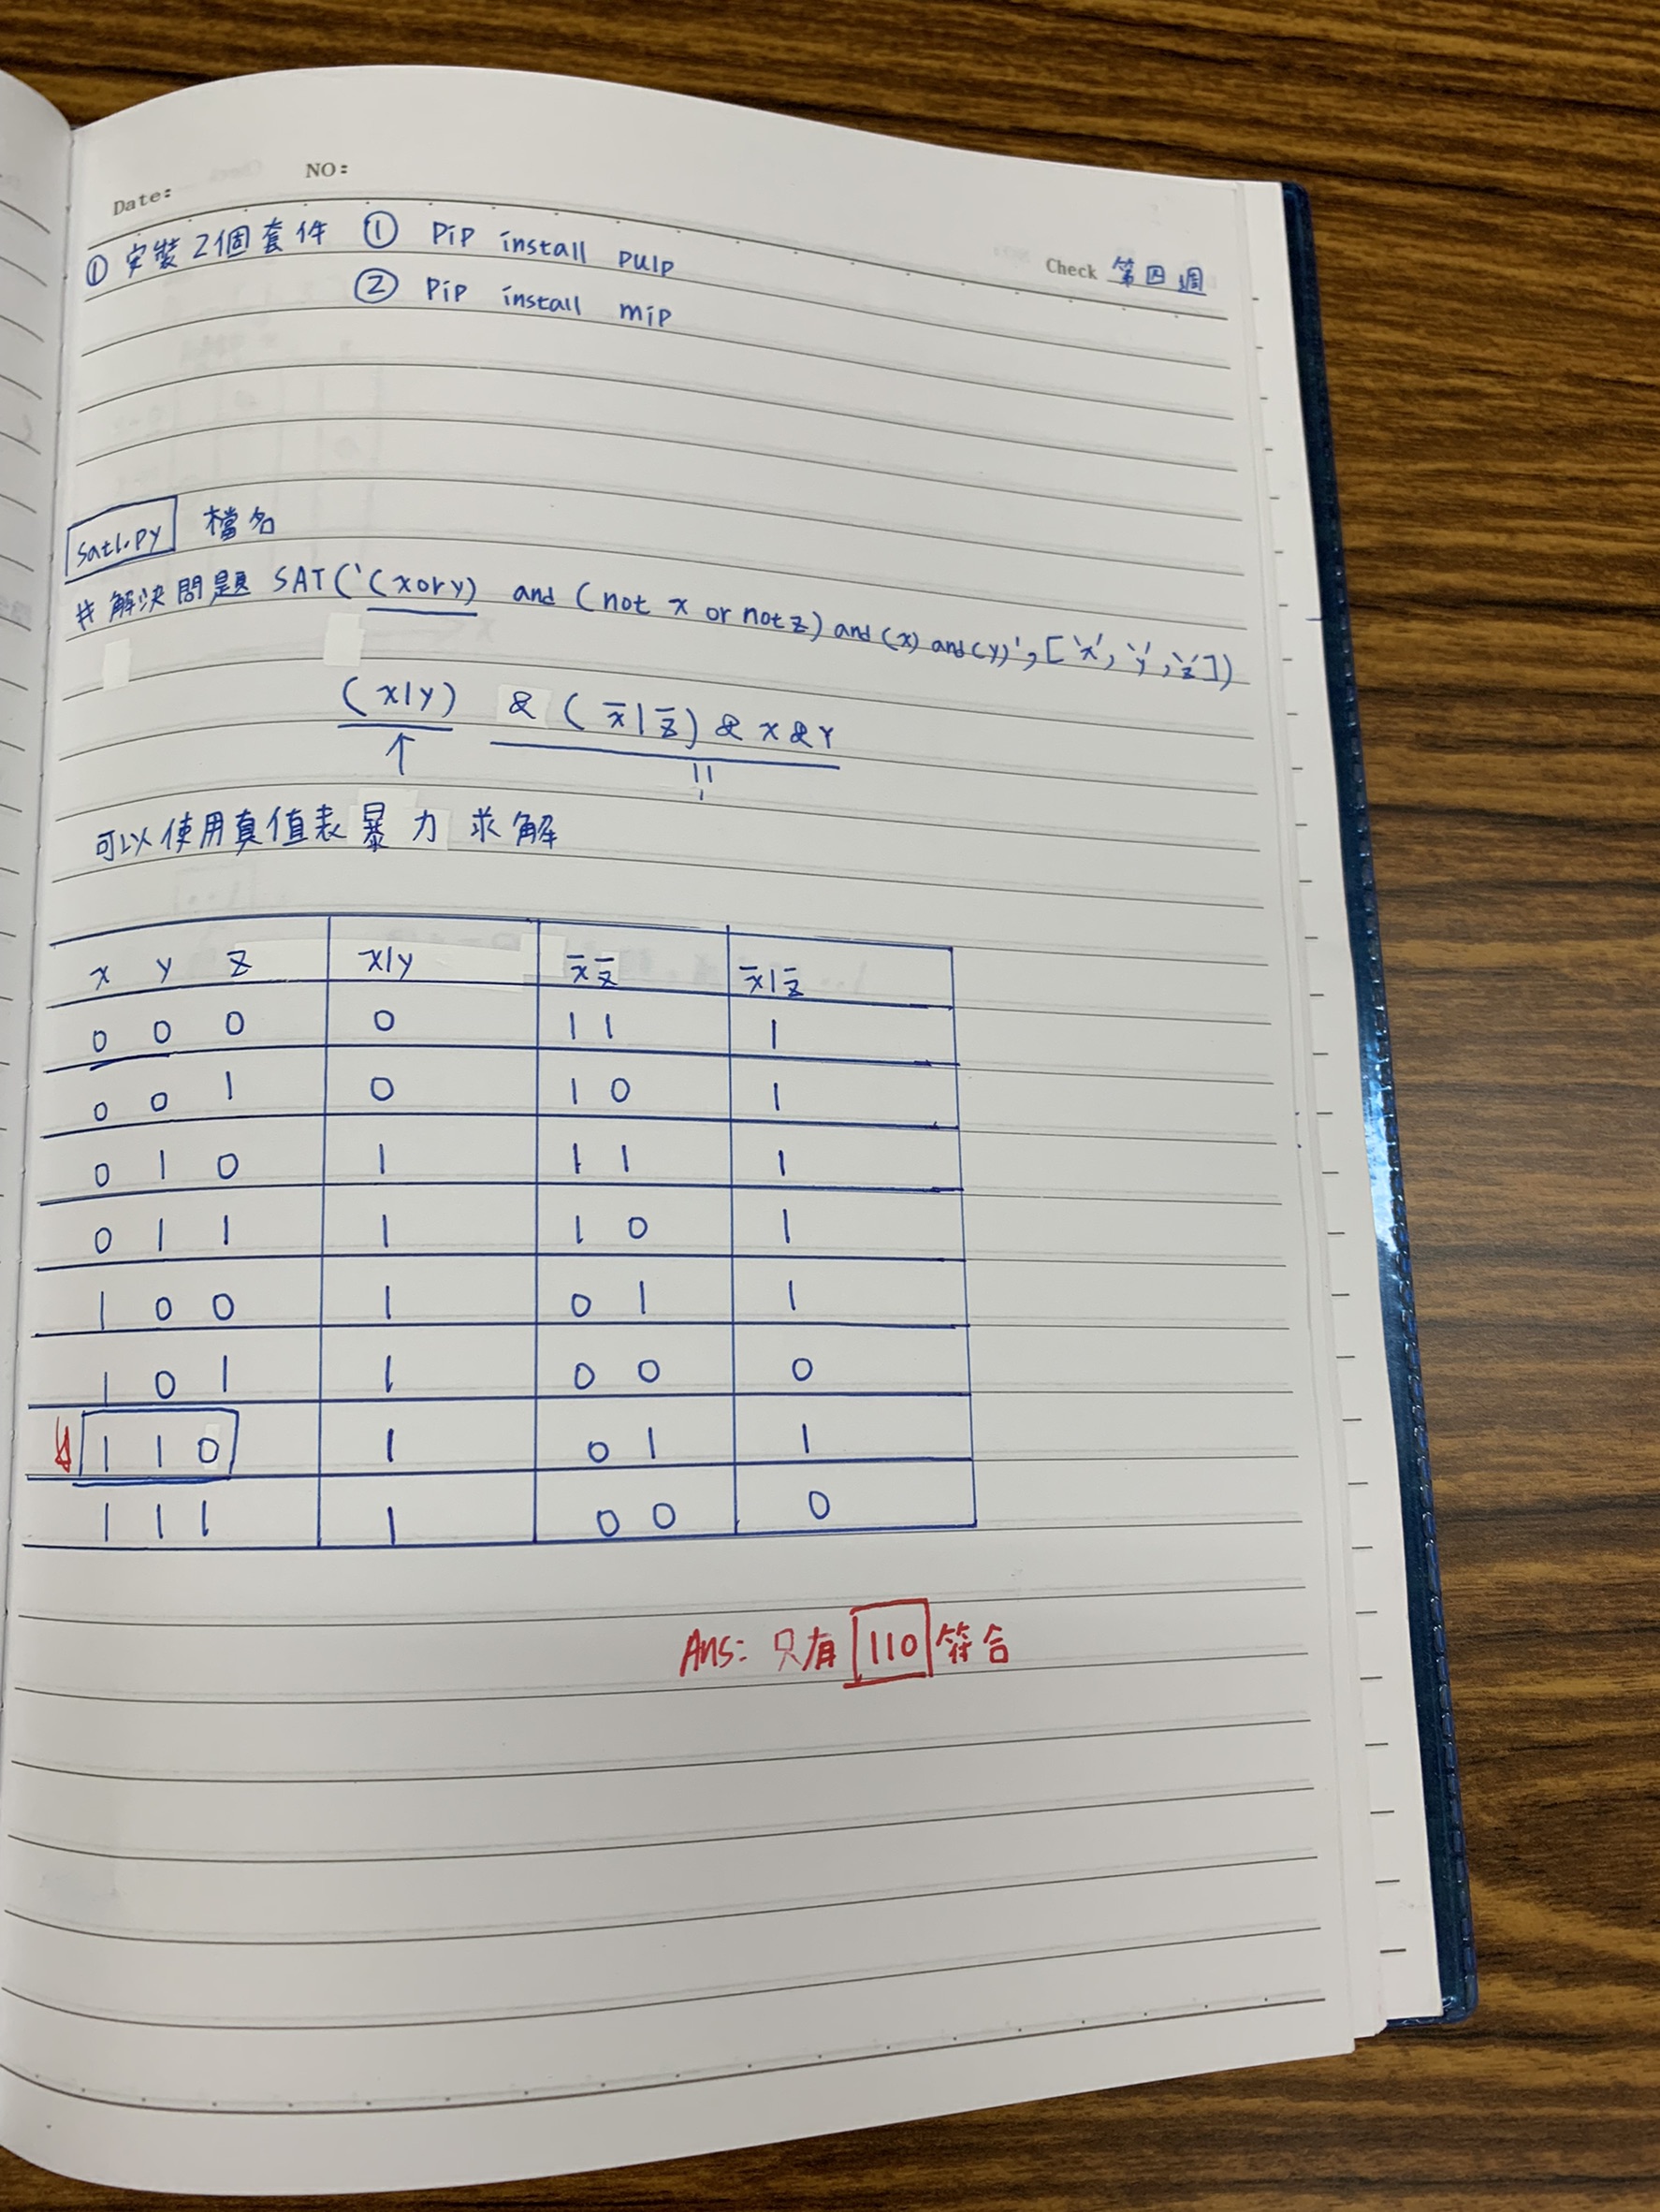 Date:
NO:
Check 第四週
① 安裝2個套件 ① PiP install pulp
② PiP install mip
sat1.py 檔名
# 解決問題 SAT('(x or y) and (not x or not z) and (x) and (y)', ['x', 'y', 'z'])
(x|y) & (x̄|z̄) & x & y
可以使用真值表暴力求解
x y z x|y x̄ z̄ x̄|z̄
0 0 0 0 1 1 1
0 0 1 0 1 0 1
0 1 0 1 1 1 1
0 1 1 1 1 0 1
1 0 0 1 0 1 1
1 0 1 1 0 0 0
1 1 0 1 0 1 1
1 1 1 1 0 0 0
Ans: 只有 110 符合